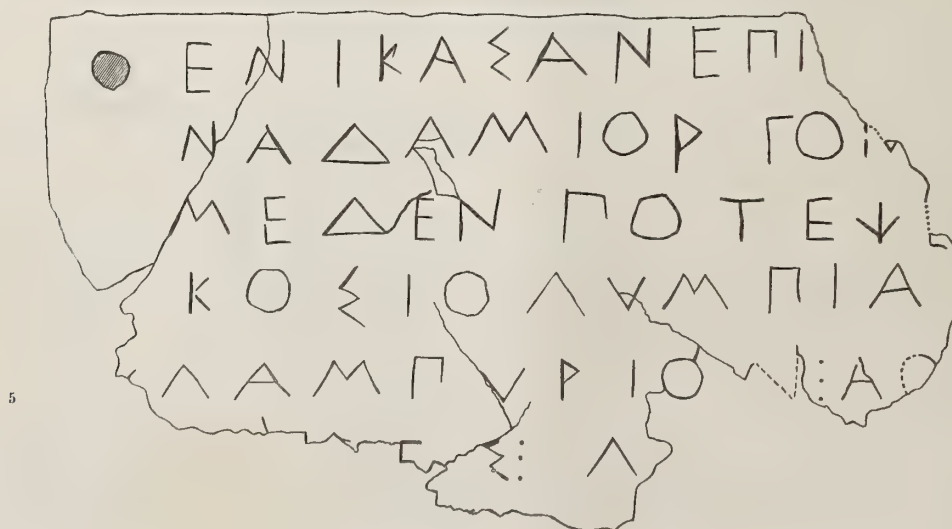 ΕΝΙΚΑΣΑΝΕΠΙ
ΝΑΔΑΜΙΟΡΓΟΙ
ΜΕΔΕΝΠΟΤΕΨ
ΚΟΣΙΟΛΥΜΠΙΑ
5 ΛΑΜΠΥΡΙΟΙ⋮ΑΟ
Σ⋮Λ